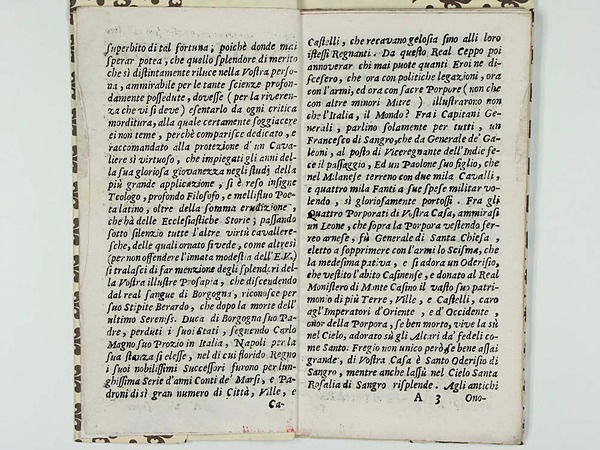 superbito di tal fortuna; poichè donde mai
sperar potea, che quello splendore di merito
che sì distintamente riluce nella Vostra perso-
na, ammirabile per le tante scienze profon-
damente possedute, dovesse (per la riveren-
za che vi si deve) esentarlo da ogni critica
morditura, alla quale certamente soggiace
ei non teme, perchè comparisce dedicato, e
raccomandato alla protezione d' un Cava-
liere sì virtuoso, che impiegati gli anni del-
la sua gloriosa giovanezza negli studj della
più grande applicazione, si è reso insigne
Teologo, profondo Filosofo, e mellifluo Poe-
ta latino, oltre della somma erudizione,
che hà delle Ecclesiastiche Storie; passando
sotto silenzio tutte l'altre virtù cavallere-
sche, delle quali ornato si vede, come altresì
(per non offendere l'innata modestia dell'E.V.)
si tralasci di far menzione degli splendori del-
la Vostra illustre Prosapia, che discendendo
dal real sangue di Borgogna, riconosce per
suo Stipite Berardo, che dopo la morte dell'
ultimo Sereniss. Duca di Borgogna suo Pa-
dre, perduti i suoi Stati, seguendo Carlo
Magno suo Prozio in Italia, Napoli per la
sua stanza si elesse, nel di cui florido Regno
i suoi nobilissimi Successori furono per lun-
ghissima Serie d'anni Conti de' Marsi, e Pa-
droni di sì gran numero di Città, Ville, e
Ca-
Castelli, che recavano gelosia sino alli loro
istessi Regnanti. Da questo Real Ceppo poi
annoverar chi mai puote quanti Eroi ne di-
scesero, che ora con politiche legazioni, ora
con l'armi, ed ora con sacre Porpore (non che
con altre minori Mitre) illustrarono non
che l'Italia, il Mondo? Fra i Capitani Ge-
nerali, parlino solamente per tutti, un
Francesco di Sangro, che da Generale de' Ga-
leoni, al posto di Viceregnante dell'Indie fe-
ce il passaggio, Ed un Paolone suo figlio, che
nel Milanese terreno con due mila Cavalli,
e quattro mila Fanti a sue spese militar vo-
lendo, sì gloriosamente portossi. Fra gli
Quattro Porporati di Vostra Casa, ammirasi
un Leone, che sopra la Porpora vestendo fer-
reo arnese, fù Generale di Santa Chiesa,
eletto a sopprimere con l'armi lo Scisma, che
la medesima pativa, e si adora un Oderisio,
che vestito l'abito Casinense, e donato al Real
Monistero di Monte Casino il vasto suo patri-
monio di più Terre, Ville, e Castelli, caro
agl'Imperatori d'Oriente, e d'Occidente,
onor della Porpora, se ben morto, vive la sù
nel Cielo, adorato sù gli Altari da' fedeli co-
me Santo. Fregio non unico però se bene assai
grande, di Vostra Casa è Santo Oderisio di
Sangro, mentre anche lassù nel Cielo Santa
Rosalia di Sangro risplende. Agli antichi
A 3 Ono-